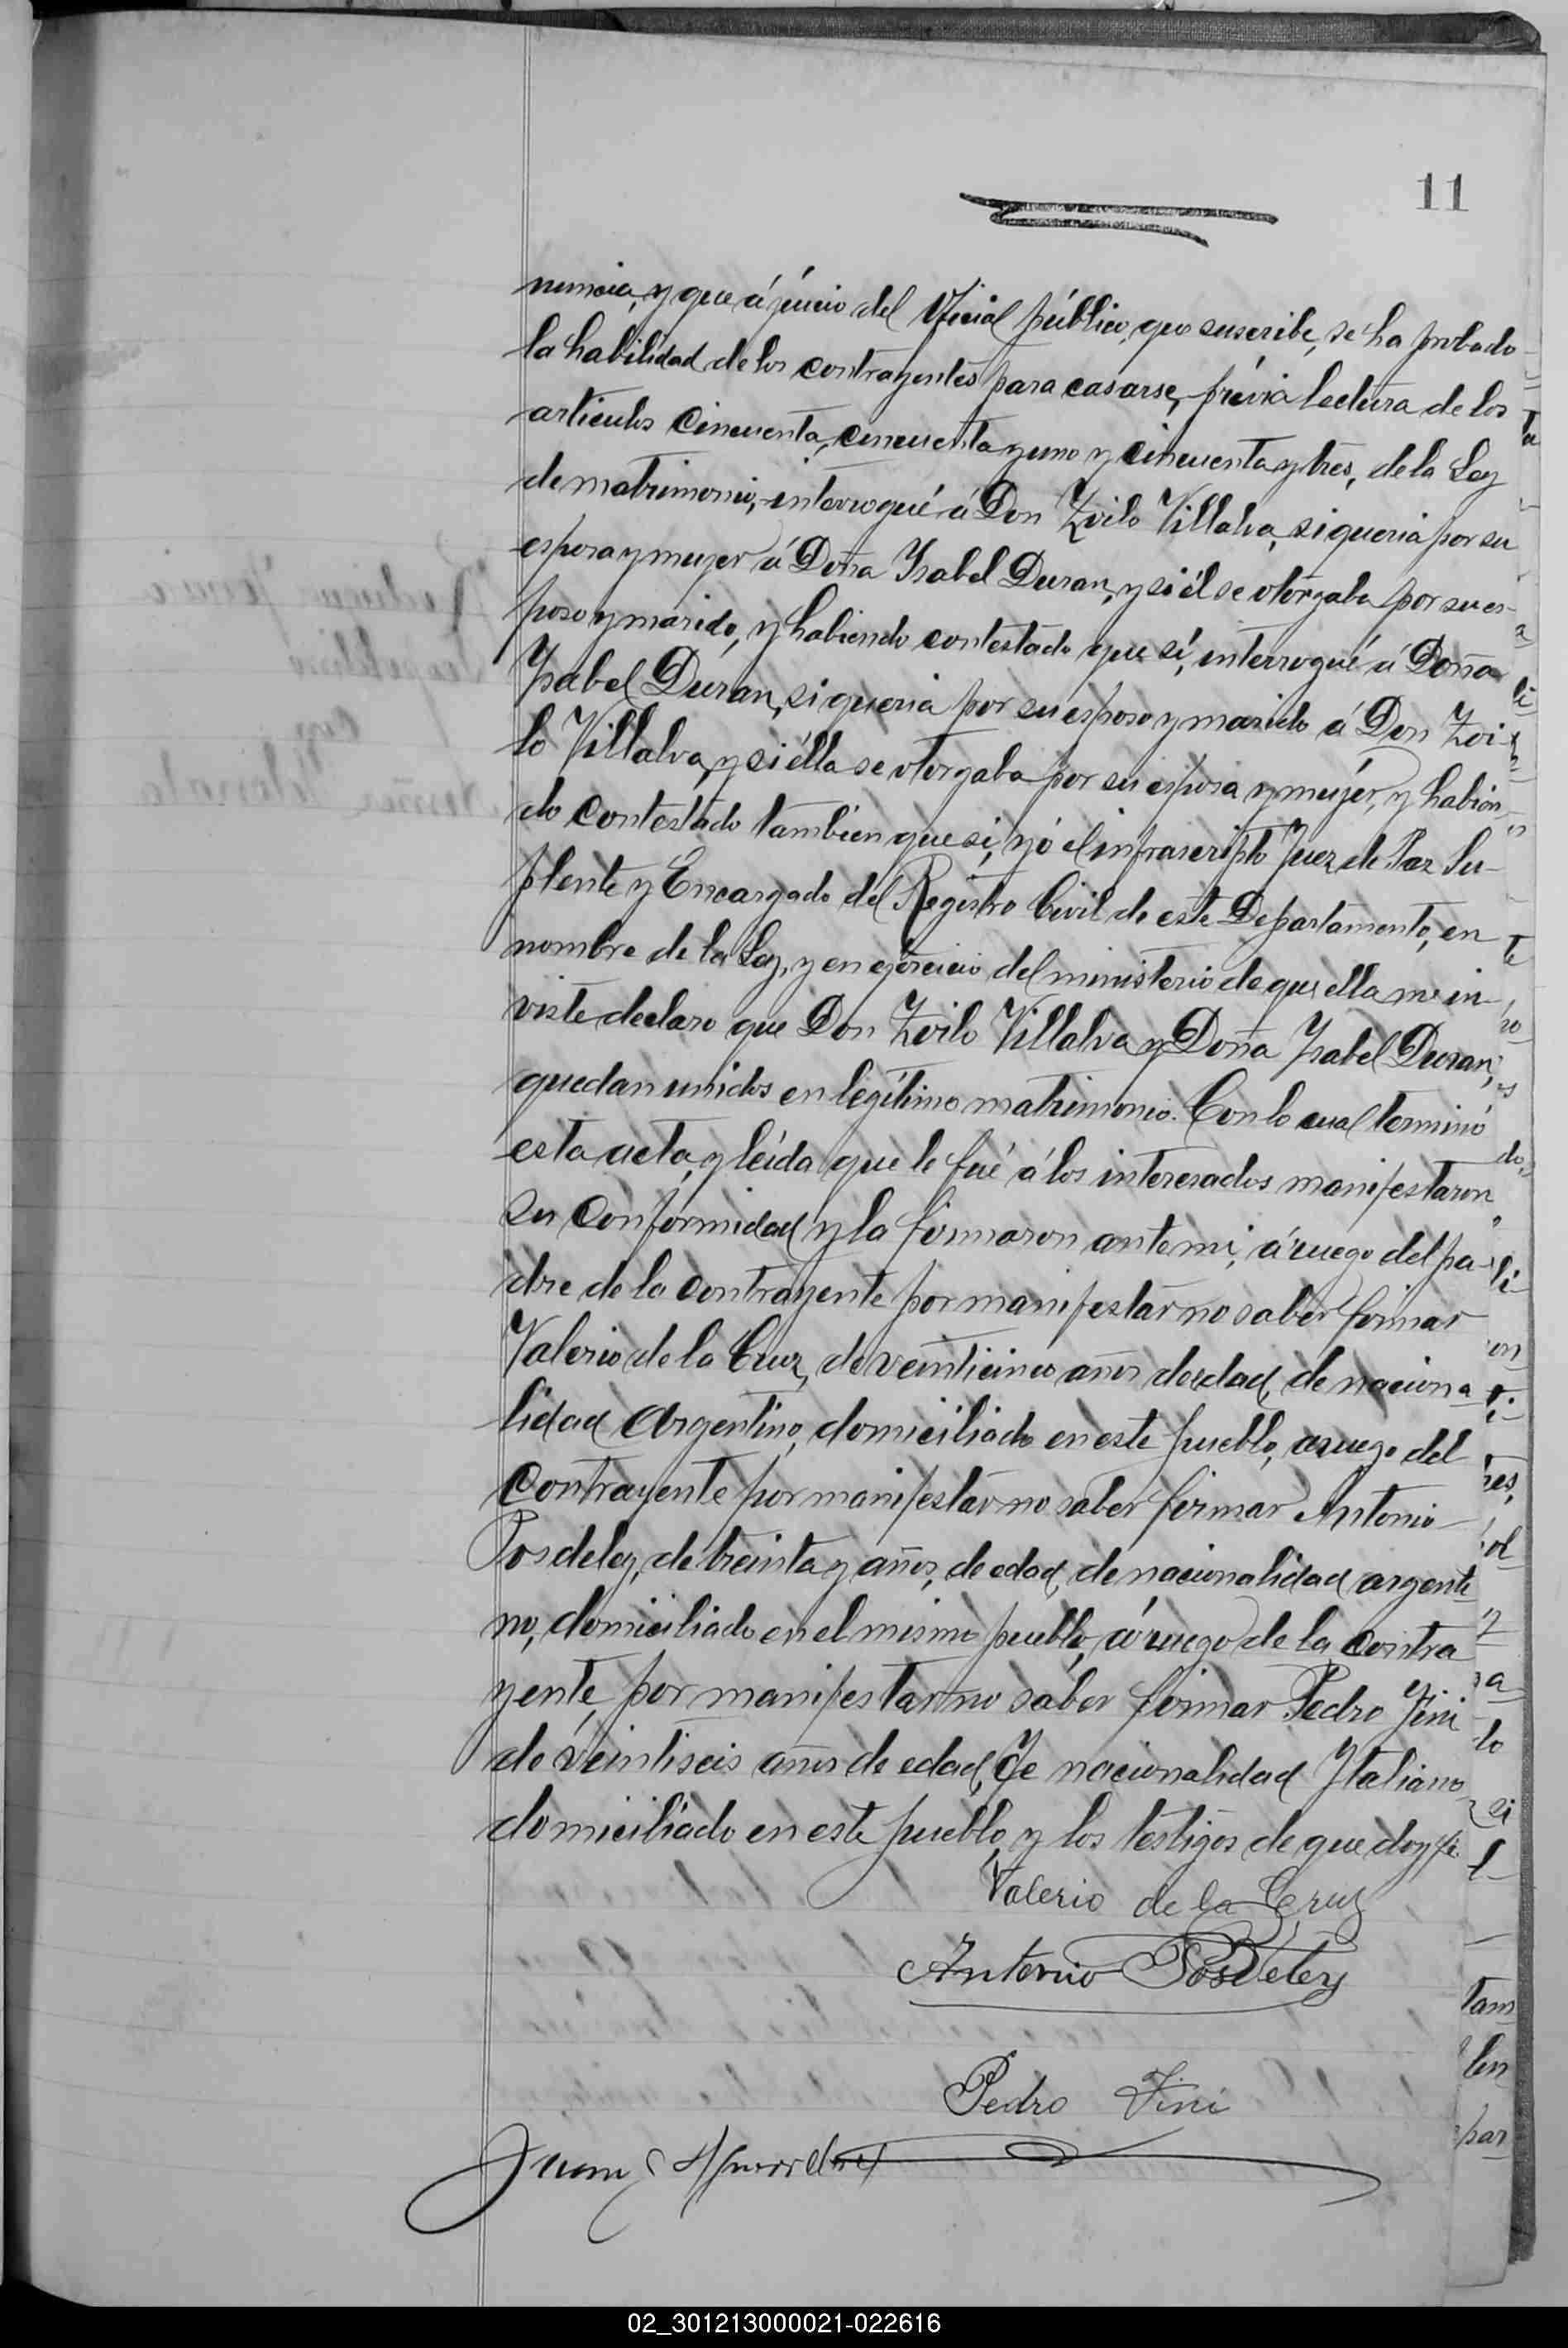 11
nuncia, y que á juicio del Oficial público, que suscribe, se ha probado
la habilidad de los contrayentes para casarse, prévia lectura de los
artículos cincuenta, cincuenta y uno y cincuenta y tres, de la Ley
de matrimonio, interrogué á Don Zoilo Villalva, si queria por su
esposa y muger á Doña Ysabel Duran, y si él se otorgaba por su es-
poso y marido, y habiendo contestado que sí, interrogué á Doña
Ysabel Duran, si queria por su esposo y marido á Don Zoi-
lo Villalva, y si élla se otorgaba por su esposa y mujer, y habien-
do contestado tambien que si, yó el infrascripto Juez de Paz Su-
plente y Encargado del Registro Civil de este Departamento, en
nombre de la Ley, y en ejercicio del ministerio de que ella me in-
viste declaro que Don Zoilo Villalva y Doña Ysabel Duran,
quedan unidos en legítimo matrimonio. Con lo cual terminó
esta acta, y leída que le fué á los interesados manifestaron
su conformidad y la firmaron ante mi, á ruego del pa-
dre de la contrayente por manifestar no saber firmar
Valerio de la Cruz, de veinticinco años de edad, de naciona
lidad Argentino, domiciliado en este pueblo, a ruego del
contrayente por manifestar no saber firmar Antonio
Posdeley, de treinta y años, de edad, de nacionalidad argenti
no, domiciliado en el mismo pueblo, á ruego de la contra
yente, por manifestar no saber firmar Pedro Fini
de veintiseis años de edad, de nacionalidad Ytaliano
domiciliado en este pueblo, y los testigos de que doy fé.
Valerio de la Cruz
Antonio Posdeley
Pedro Fini
Juan
02_301213000021-022616